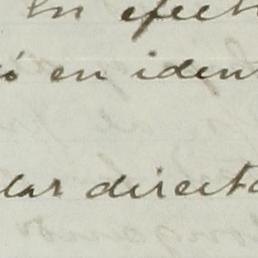 En efect
ó en iden
lar directo